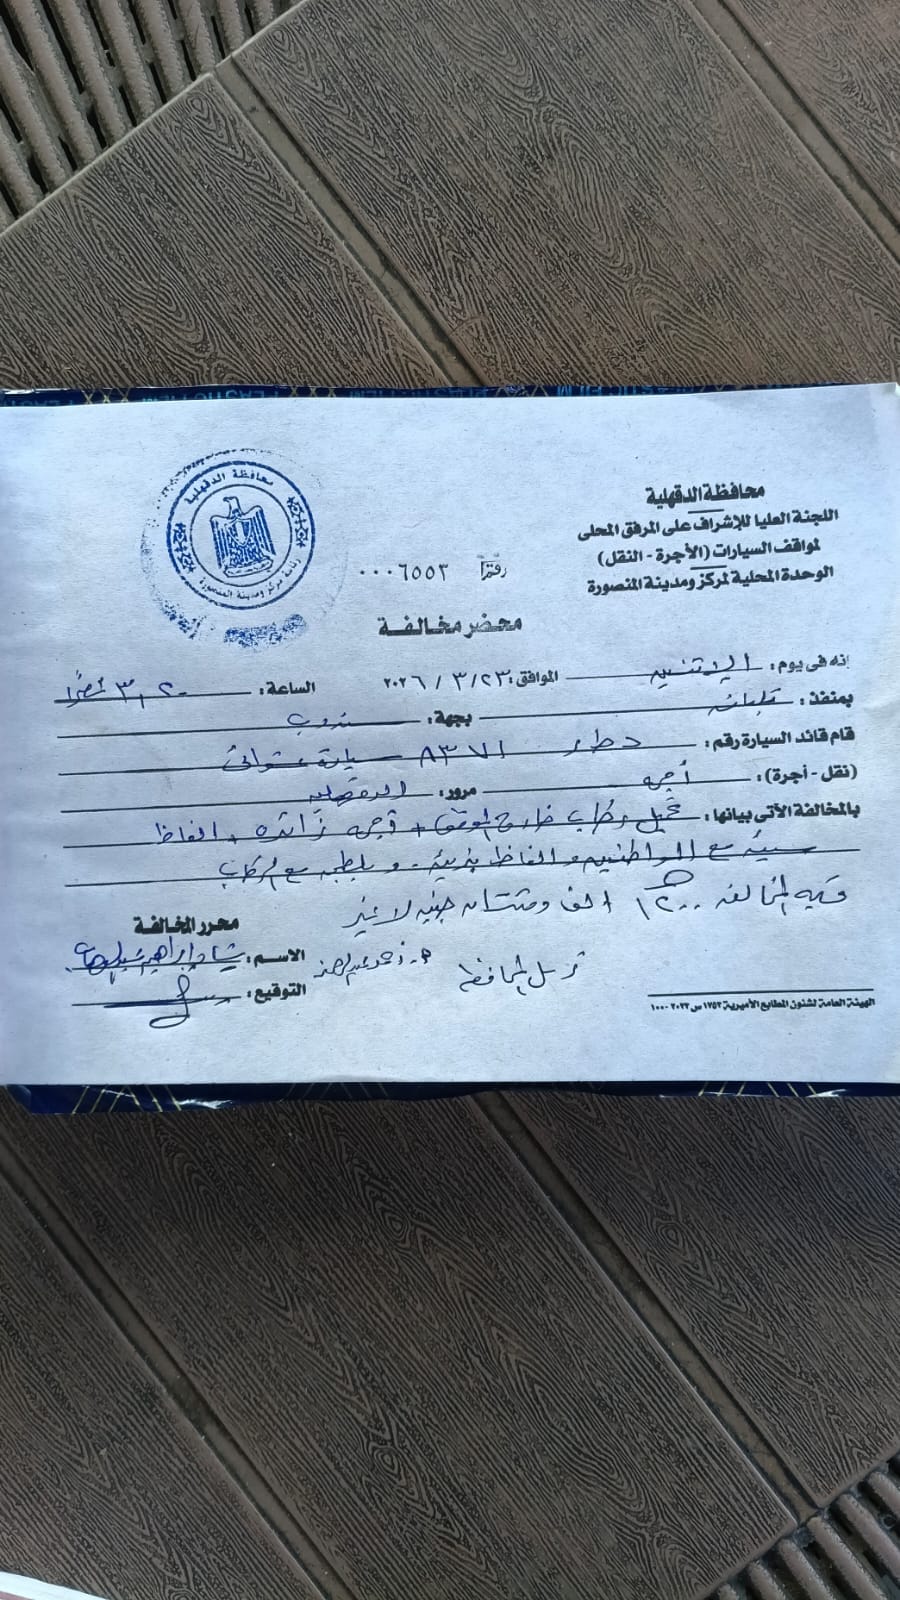 محافظة الدقهلية
اللجنة العليا للإشراف على المرفق المحلى
لمواقف السيارات (الأجرة - النقل)
الوحدة المحلية لمركز ومدينة المنصورة
محافظة الدقهلية
رئاسة مركز ومدينة المنصورة
٠٠٠٦٥٥٣
محضر مخالفة
إنه فى يوم: الاثنين الموافق: ٢٣ / ٣ / ٢٠٢٦ الساعة: ٣,٢٠ عصرًا
بمنفذ: تلبانه بجهة: سندوب
قام قائد السيارة رقم: د ط ر ٨٣٧١ سيارة عشوائى
(نقل - أجرة): أجره مرور: الدقهليه
بالمخالفة الأتى بيانها: تحميل ركاب خارج الموقف + أجره زائده + الفاظ
سيئة مع المواطنين والفاظ بذيئة . و مع الركاب
قيمه المخالفه ١٢٠٠ الف ومئتان جنيه لا غير
محرر المخالفة
الاسم: ابراهيم
ترسل للمحافظه
التوقيع:
الهيئة العامة لشئون المطابع الأميرية ١٧٥٢ س ٢٠٢٣ - ١٠٠٠